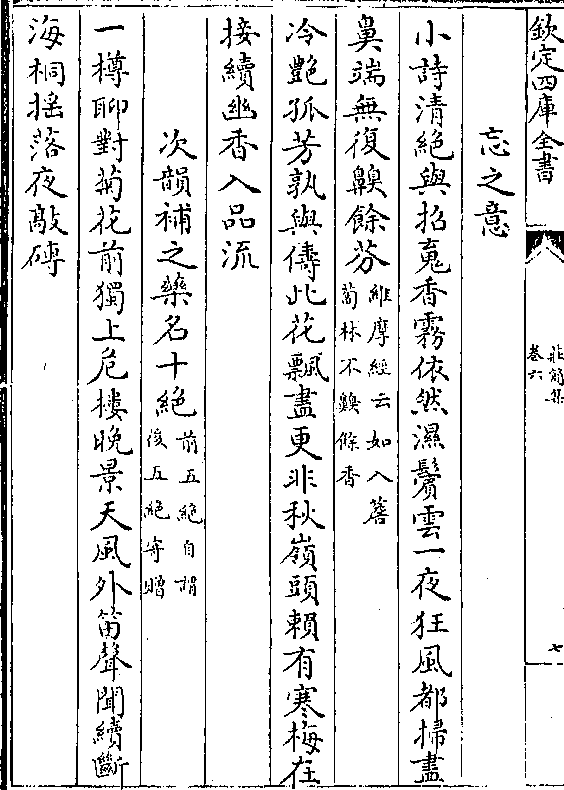 欽定四庫全書
莊簡集
卷六
七
忘之意
小詩清絶與招䰟香霧依然濕鬢雲一夜狂風都掃盡
鼻端無復齅餘芬維摩經云如入薝
蔔林不齅餘香
冷艷孤芳孰與儔此花飄盡更非秋嶺頭賴有寒梅在
接續幽香入品流
次韻補之藥名十絶前五絶自謂
後五絶寄贈
一樽聊對菊花前獨上危樓晚景天風外笛聲聞續斷
海桐揺落夜敲磚